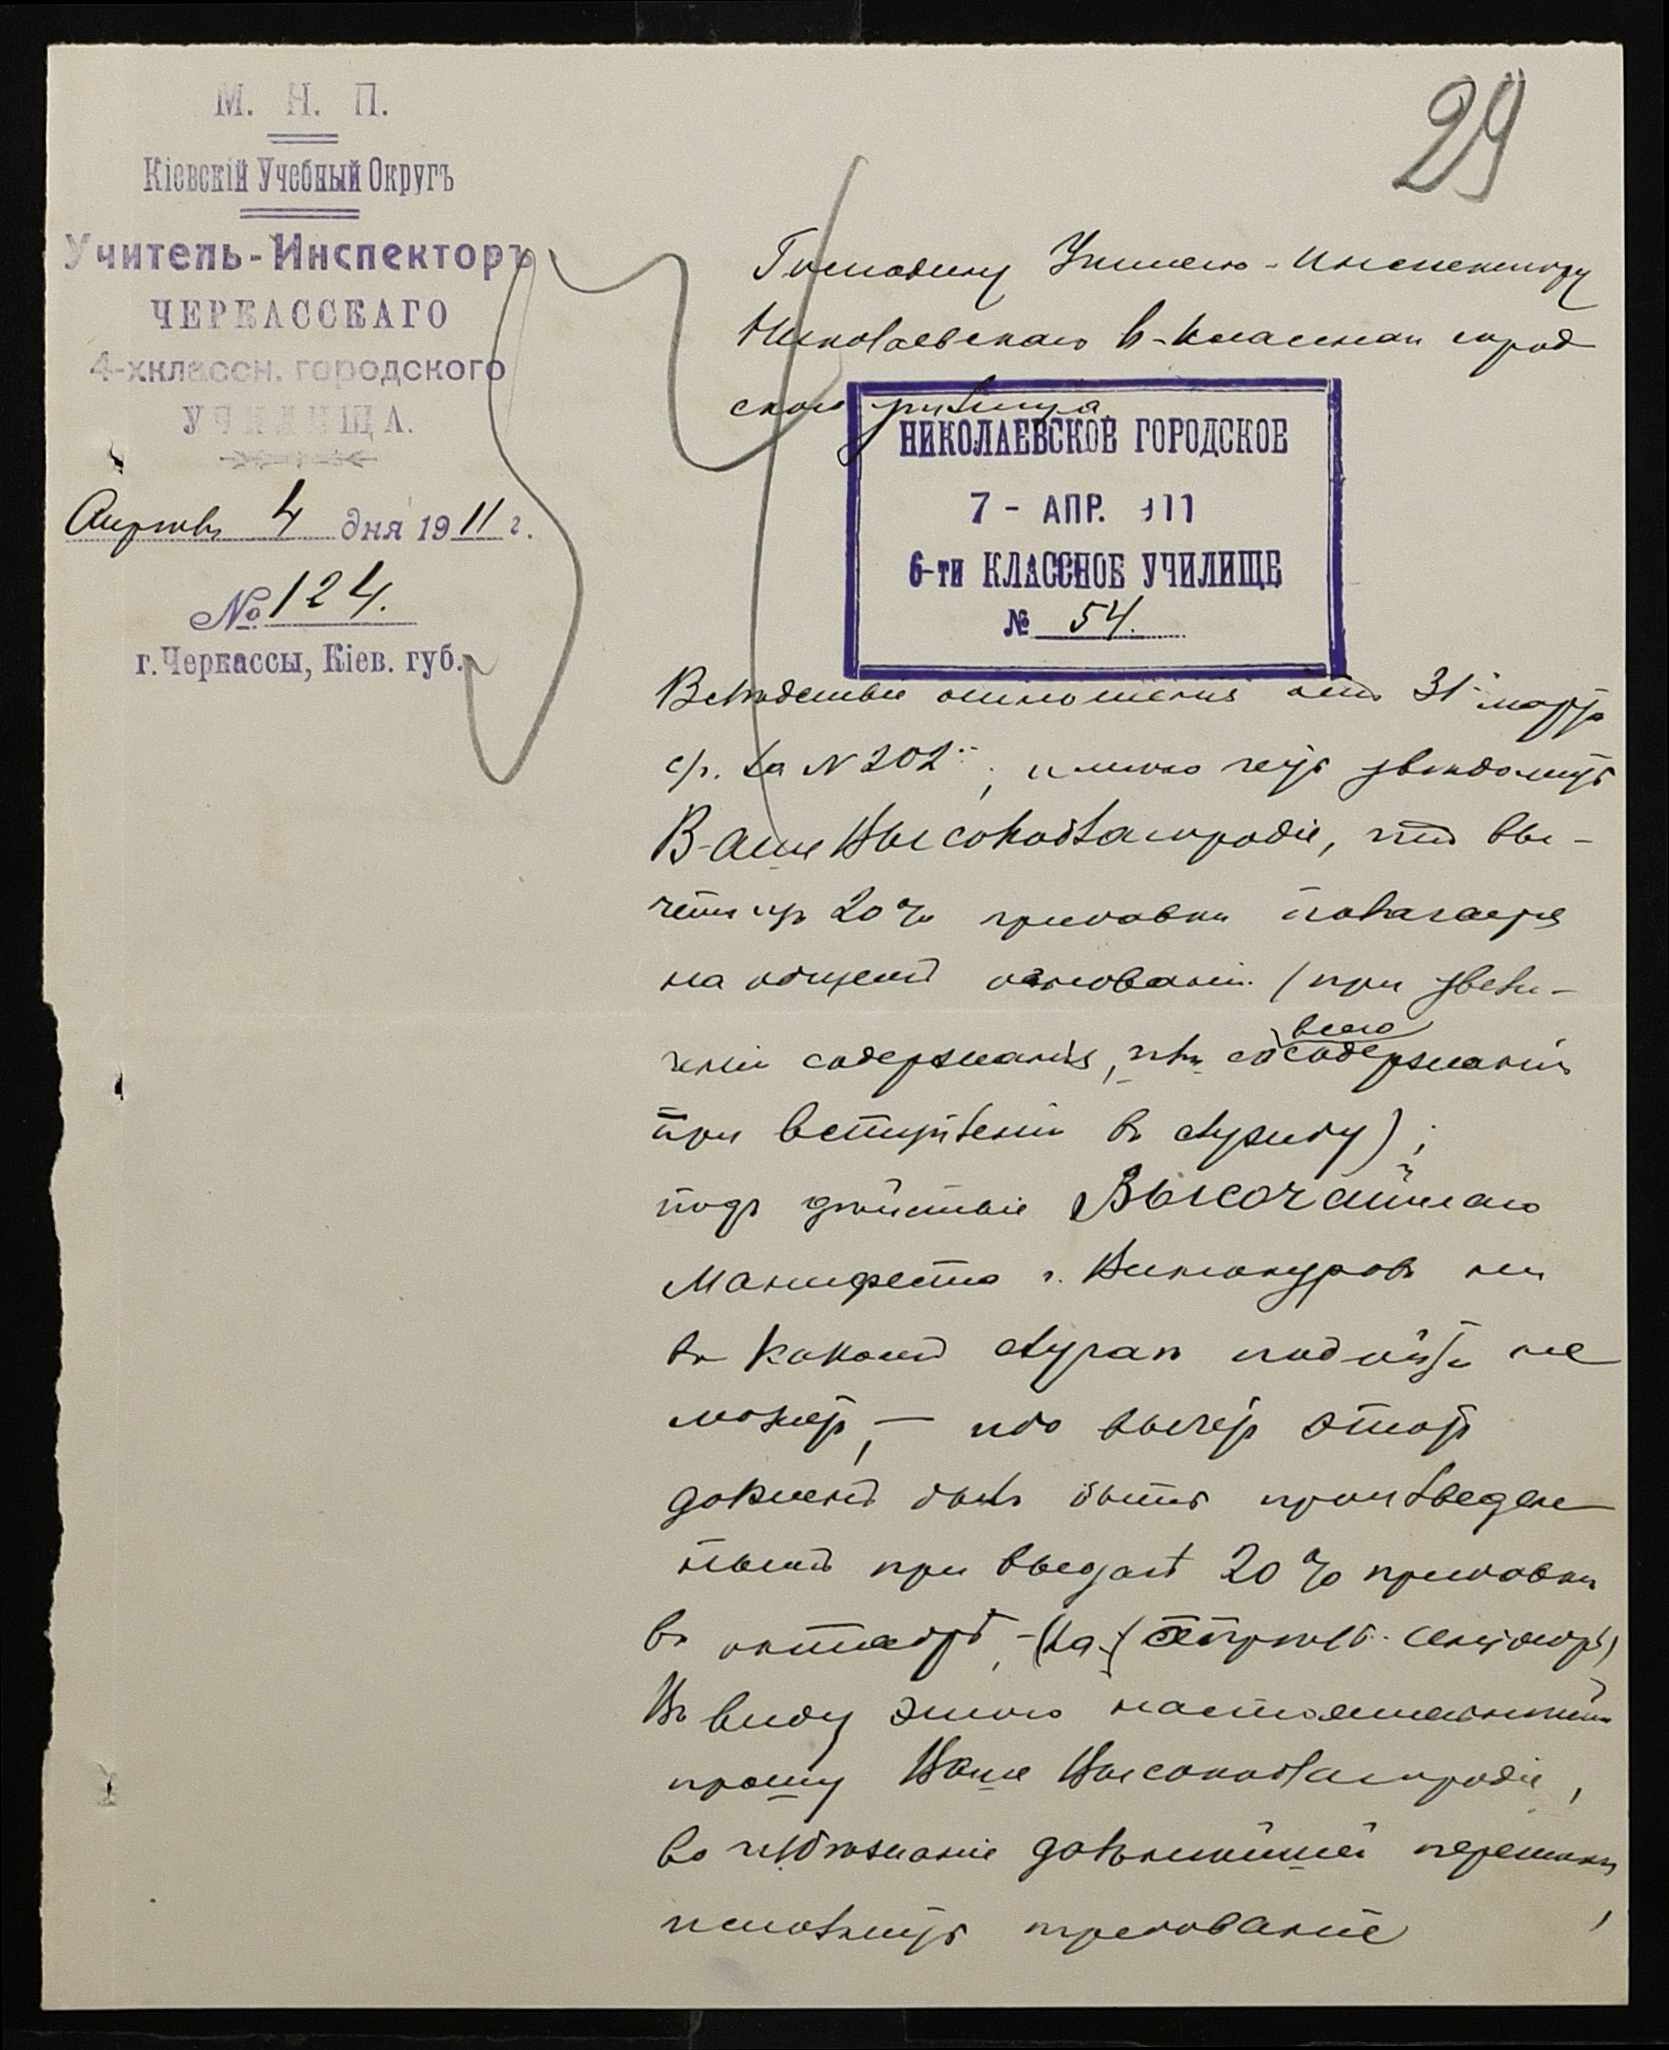 29
М. Н. П.
Кіевскій Учебный Округъ
Учитель-Инспекторъ
ЧЕРКАССКАГО
4-хклассн. городского
УЧИЛИЩА.
Апрѣля 4 дня 1911 г.
№ 124.
г. Черкассы, Кіев. губ.
Господину Учителю-Инспектору
Николаевскаго 6-классн город
ского училища
НИКОЛАЕВСКОЕ ГОРОДСКОЕ
7 - АПР. 911
6-ти КЛАССНОЕ УЧИЛИЩЕ
№ 54.
Вслѣдствіе отношенія отъ 31 марта
с/г. за N 202, имѣю честь увѣдомить
Ваше Высокоблагородіе, что вы-
четъ изъ 20% прибавки полагается
на общемъ основаніи (при увели-
ченіи содержанія, со всего содержанія
при вступленіи въ службу);
подъ дѣйствіе Высочайшаго
Манифеста г. Винокуровъ ни
въ какомъ случаѣ подойти не
можетъ, — ибо вычетъ этотъ
долженъ былъ быть произведен
нымъ при выдачѣ 20% прибавки
въ октябрѣ, (за сентябрь)
Въ виду этого
прошу Ваше Высокоблагородіе,
во избѣжаніе дальнѣйшей переписки,
исполнить требованіе